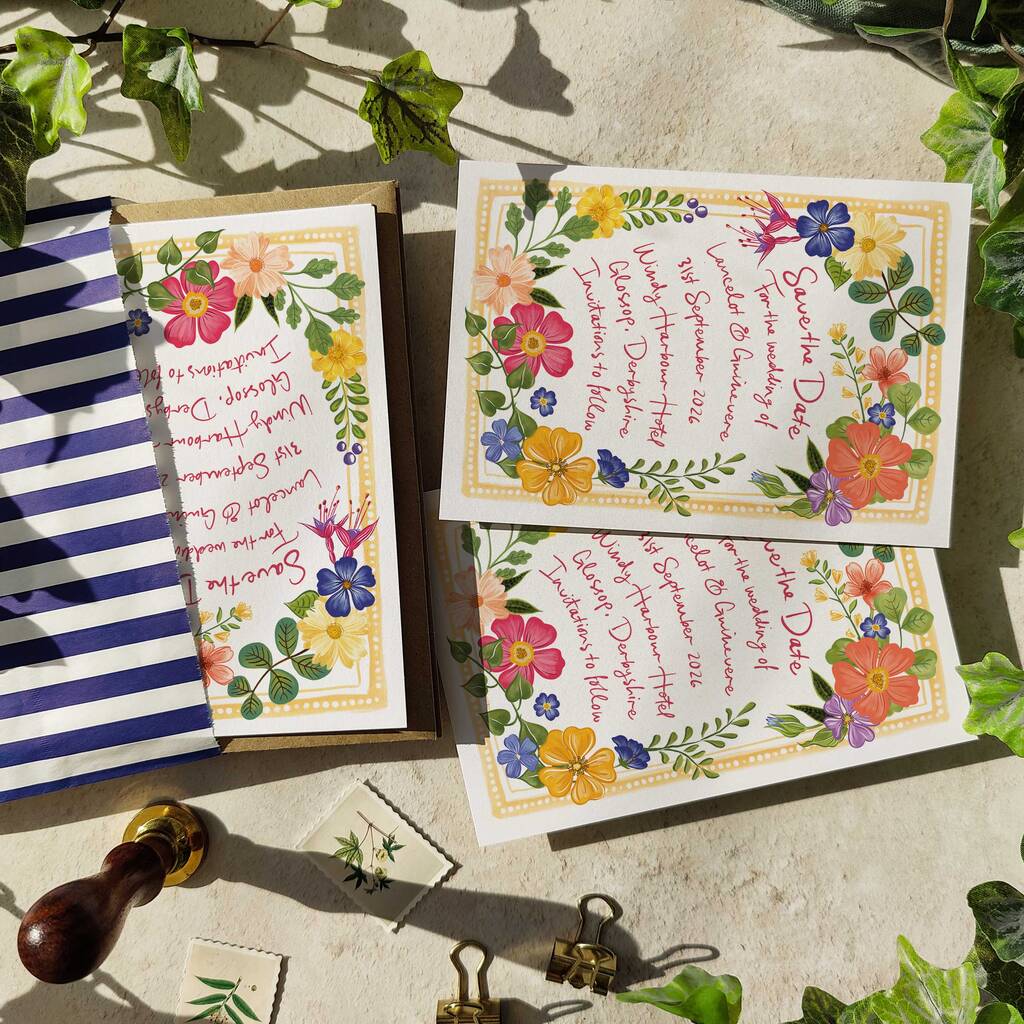 Save the Date
For the wedding of
Lancelot & Guinevere
31st September 2026
Windy Harbour Hotel
Glossop, Derbyshire
Invitations to follow
Save the
For the weddin
Lancelot & Guin
31st September 2
Windy Harbour
Glossop, Derbys
Invitations to foll
ve the Date
or the wedding of
celot & Guinevere
31st September 2026
Windy Harbour Hotel
Glossop, Derbyshire
Invitations to follow